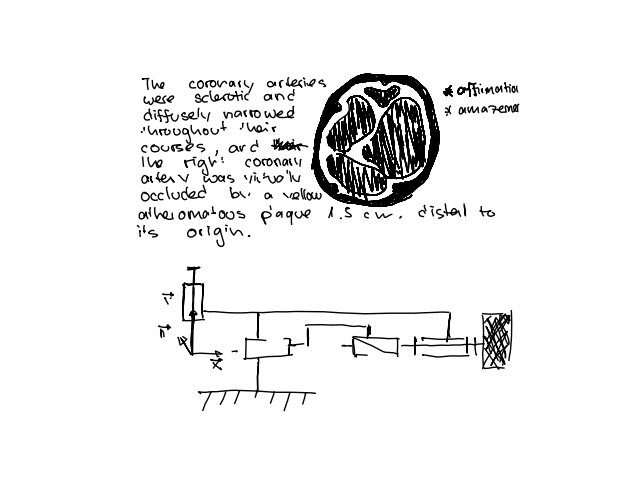 The coronary arteries
were sclerotic and
diffusely narrowed
throughout their
courses, and
the right coronary
artery was virtually
occluded by a yellow
atheromatous plaque 1.5 cm. distal to
its origin.
* affirmation
x amazemen
n
x